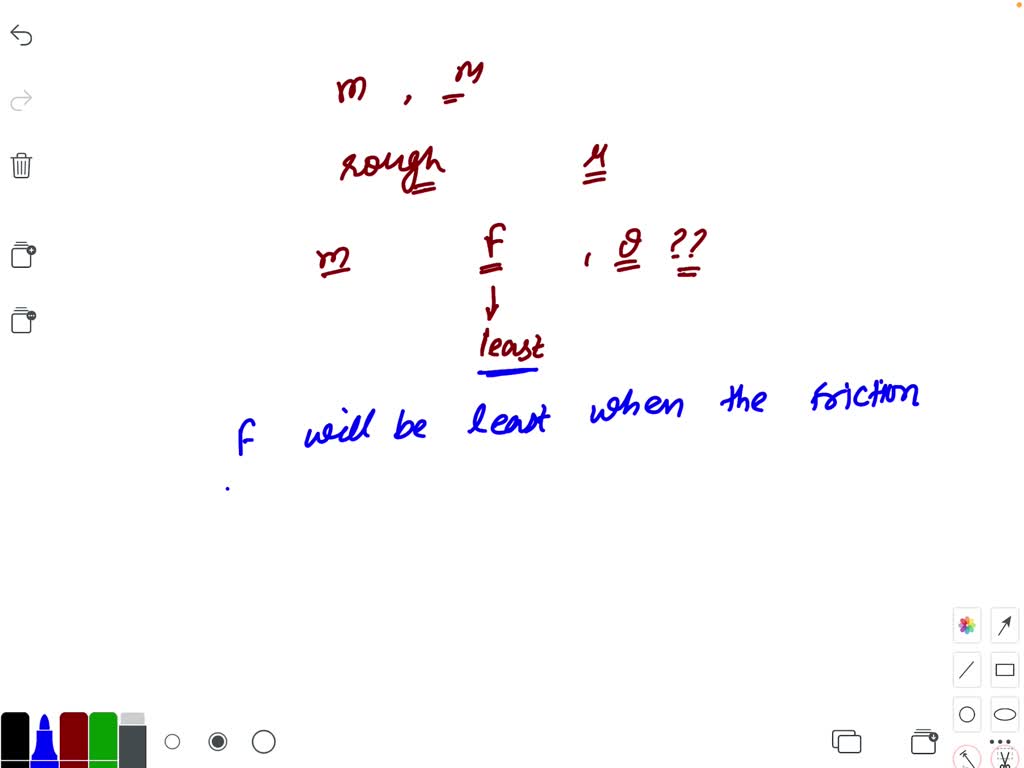 m , M
rough μ
m F , θ ??
least
F will be least when the friction